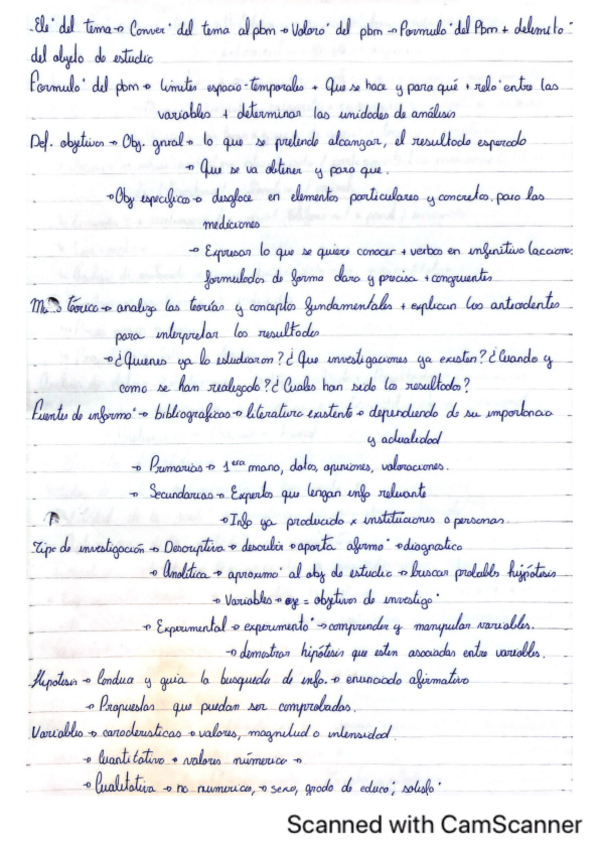 -Ele° del tema → Conver° del tema al pbm → Valora° del pbm → Formula° del Pbm + delimita°
del objeto de estudio
Formula° del pbm → límites espacio-temporales + Que se hace y para qué + rela° entre las
variables + determinar las unidades de análisis
Def. objetivos → Obj. gnral → lo que se pretende alcanzar, el resultado esperado
→ Que se va obtener y para que.
→ Obj especificos → desgloce en elementos particulares y concretos. para las
mediciones
→ Expresar lo que se quiere conocer + verbos en infinitivo (accion
formulados de forma clara y precisa + congruentes
teórico → analiza las teorías y conceptos fundamentales + explican los antecedentes
para interpretar los resultados
→ ¿Quienes ya lo estudiaron? ¿Que investigaciones ya existen? ¿Cuando y
como se han realizado? ¿Cuales han sido los resultados?
Fuentes de informa° → bibliograficas → literatura existente → dependiendo de su importancia
y actualidad
→ Primarias → 1era mano, datos, opiniones, valoraciones.
→ Secundarias → Expertos que tengan info relevante
→ Info ya producida x instituciones o personas.
Tipo de investigación → Descriptiva → describir → aporta afirma° → diagnostico
→ Analítica → aproxima° al obj de estudio → buscar probables hipótesis
→ Variables → eje = objetivos de investiga°
→ Experimental → experimento° → comprender y manipular variables.
→ demostrar hipótesis que esten asociadas entre variables.
Hipotesis → conduce y guia la busqueda de info. → enunciado afirmativo
→ Propuestas que puedan ser comprobadas.
Variables → caracteristicas → valores, magnitud o intensidad.
→ Cuantitativa → valores númerico →
→ Cualitativa → no numerica, → sexo, grado de educa°; satisfa°
Scanned with CamScanner